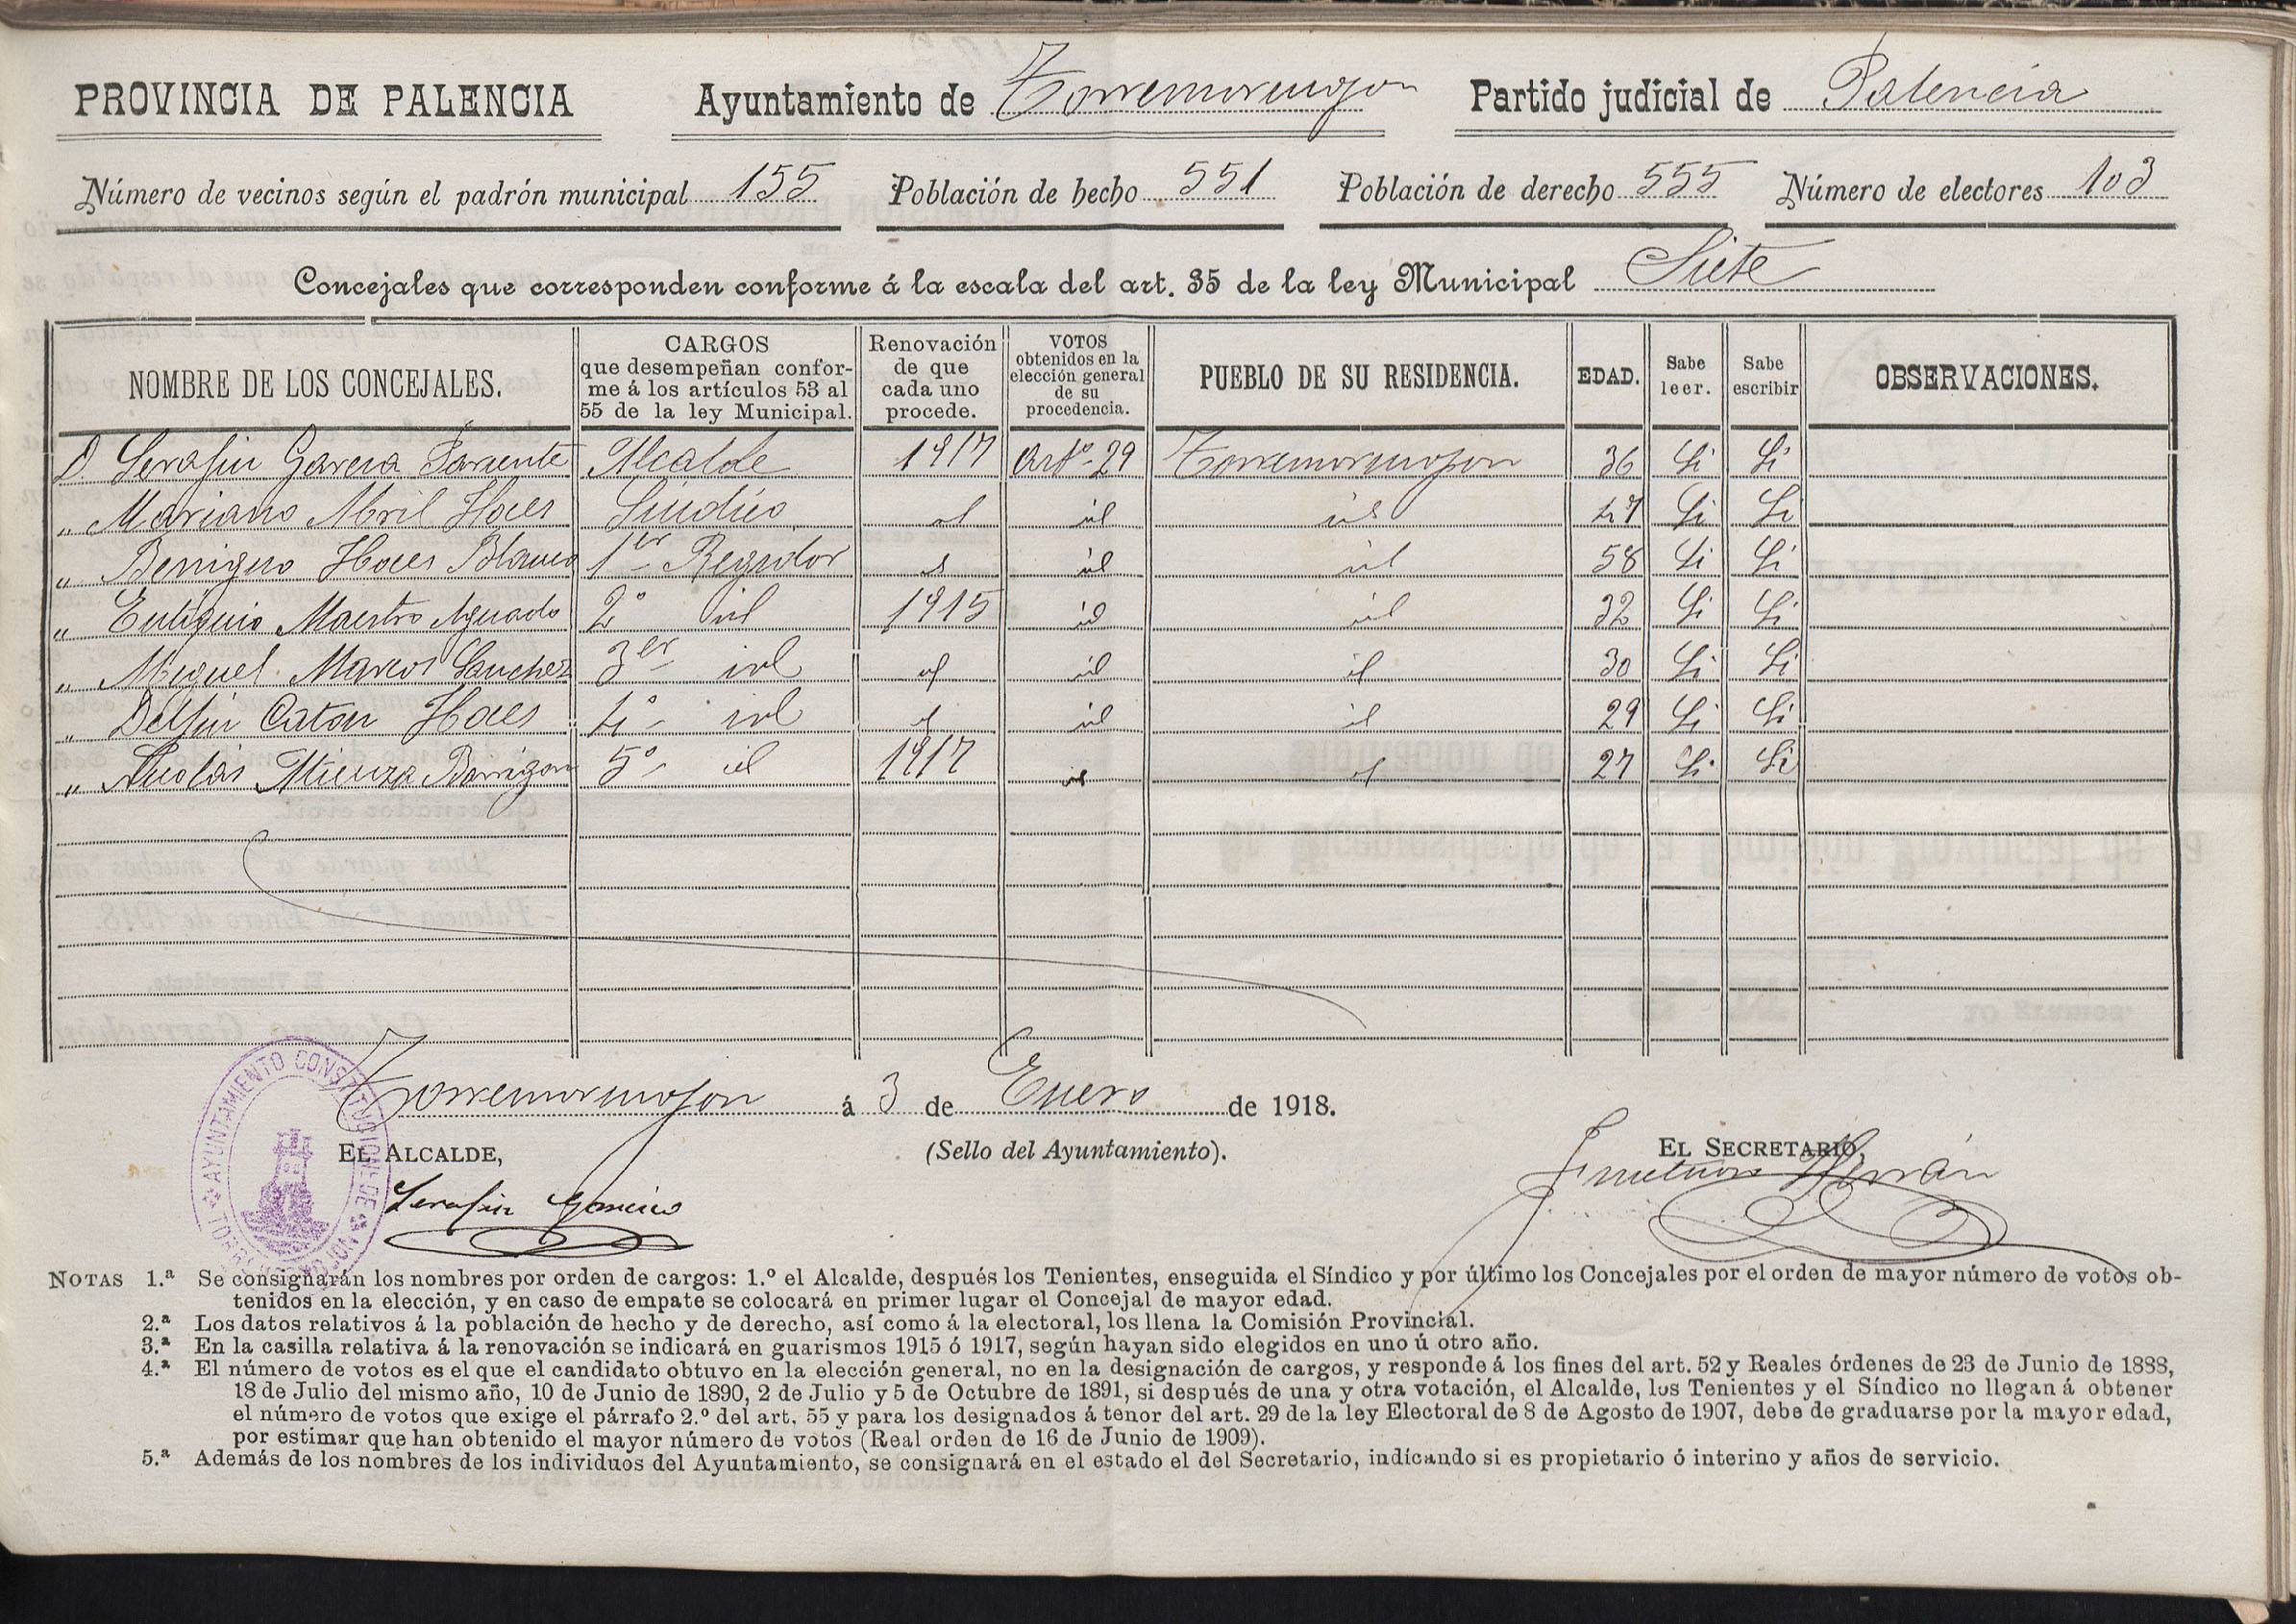 PROVINCIA DE PALENCIA Ayuntamiento de Torremormojon Partido judicial de Palencia
Número de vecinos según el padrón municipal 155 Población de hecho 551 Población de derecho 555 Número de electores 103
Concejales que corresponden conforme á la escala del art. 35 de la ley Municipal Siete
NOMBRE DE LOS CONCEJALES. CARGOS que desempeñan confor-me á los artículos 53 al 55 de la ley Municipal. Renovación de que cada uno procede. VOTOS obtenidos en la elección general de su procedencia. PUEBLO DE SU RESIDENCIA. EDAD. Sabe leer. Sabe escribir OBSERVACIONES.
D. Serafin Garcia Pariente Alcalde 1917 Artº 29 Torremormojon 36 Si Si
„ Mariano Abril Haes Sindico id id id 47 Si Si
„ Benigno Haes Blanco 1er Regidor id id id 58 Si Si
„ Eutiquio Maestro Aguado 2º id 1915 id id 32 Si Si
„ Miguel Marcos Sanchez 3er id id id id 30 Si Si
„ Delfin Caton Haes 4º id id id id 29 Si Si
„ Nicolás Atienza Barrigon 5º id 1917 id id 27 Si Si
Torremormojon á 3 de Enero de 1918.
EL ALCALDE, (Sello del Ayuntamiento). EL SECRETARIO,
AYUNTAMIENTO CONSTITUCIONAL DE
Serafin Garcia Herrán
NOTAS 1.ª Se consignarán los nombres por orden de cargos: 1.º el Alcalde, después los Tenientes, enseguida el Síndico y por último los Concejales por el orden de mayor número de votos ob-
tenidos en la elección, y en caso de empate se colocará en primer lugar el Concejal de mayor edad.
2.ª Los datos relativos á la población de hecho y de derecho, así como á la electoral, los llena la Comisión Provincial.
3.ª En la casilla relativa á la renovación se indicará en guarismos 1915 ó 1917, según hayan sido elegidos en uno ú otro año.
4.ª El número de votos es el que el candidato obtuvo en la elección general, no en la designación de cargos, y responde á los fines del art. 52 y Reales órdenes de 23 de Junio de 1888,
18 de Julio del mismo año, 10 de Junio de 1890, 2 de Julio y 5 de Octubre de 1891, si después de una y otra votación, el Alcalde, los Tenientes y el Síndico no llegan á obtener
el número de votos que exige el párrafo 2.º del art. 55 y para los designados á tenor del art. 29 de la ley Electoral de 8 de Agosto de 1907, debe de graduarse por la mayor edad,
por estimar que han obtenido el mayor número de votos (Real orden de 16 de Junio de 1909).
5.ª Además de los nombres de los individuos del Ayuntamiento, se consignará en el estado el del Secretario, indicando si es propietario ó interino y años de servicio.